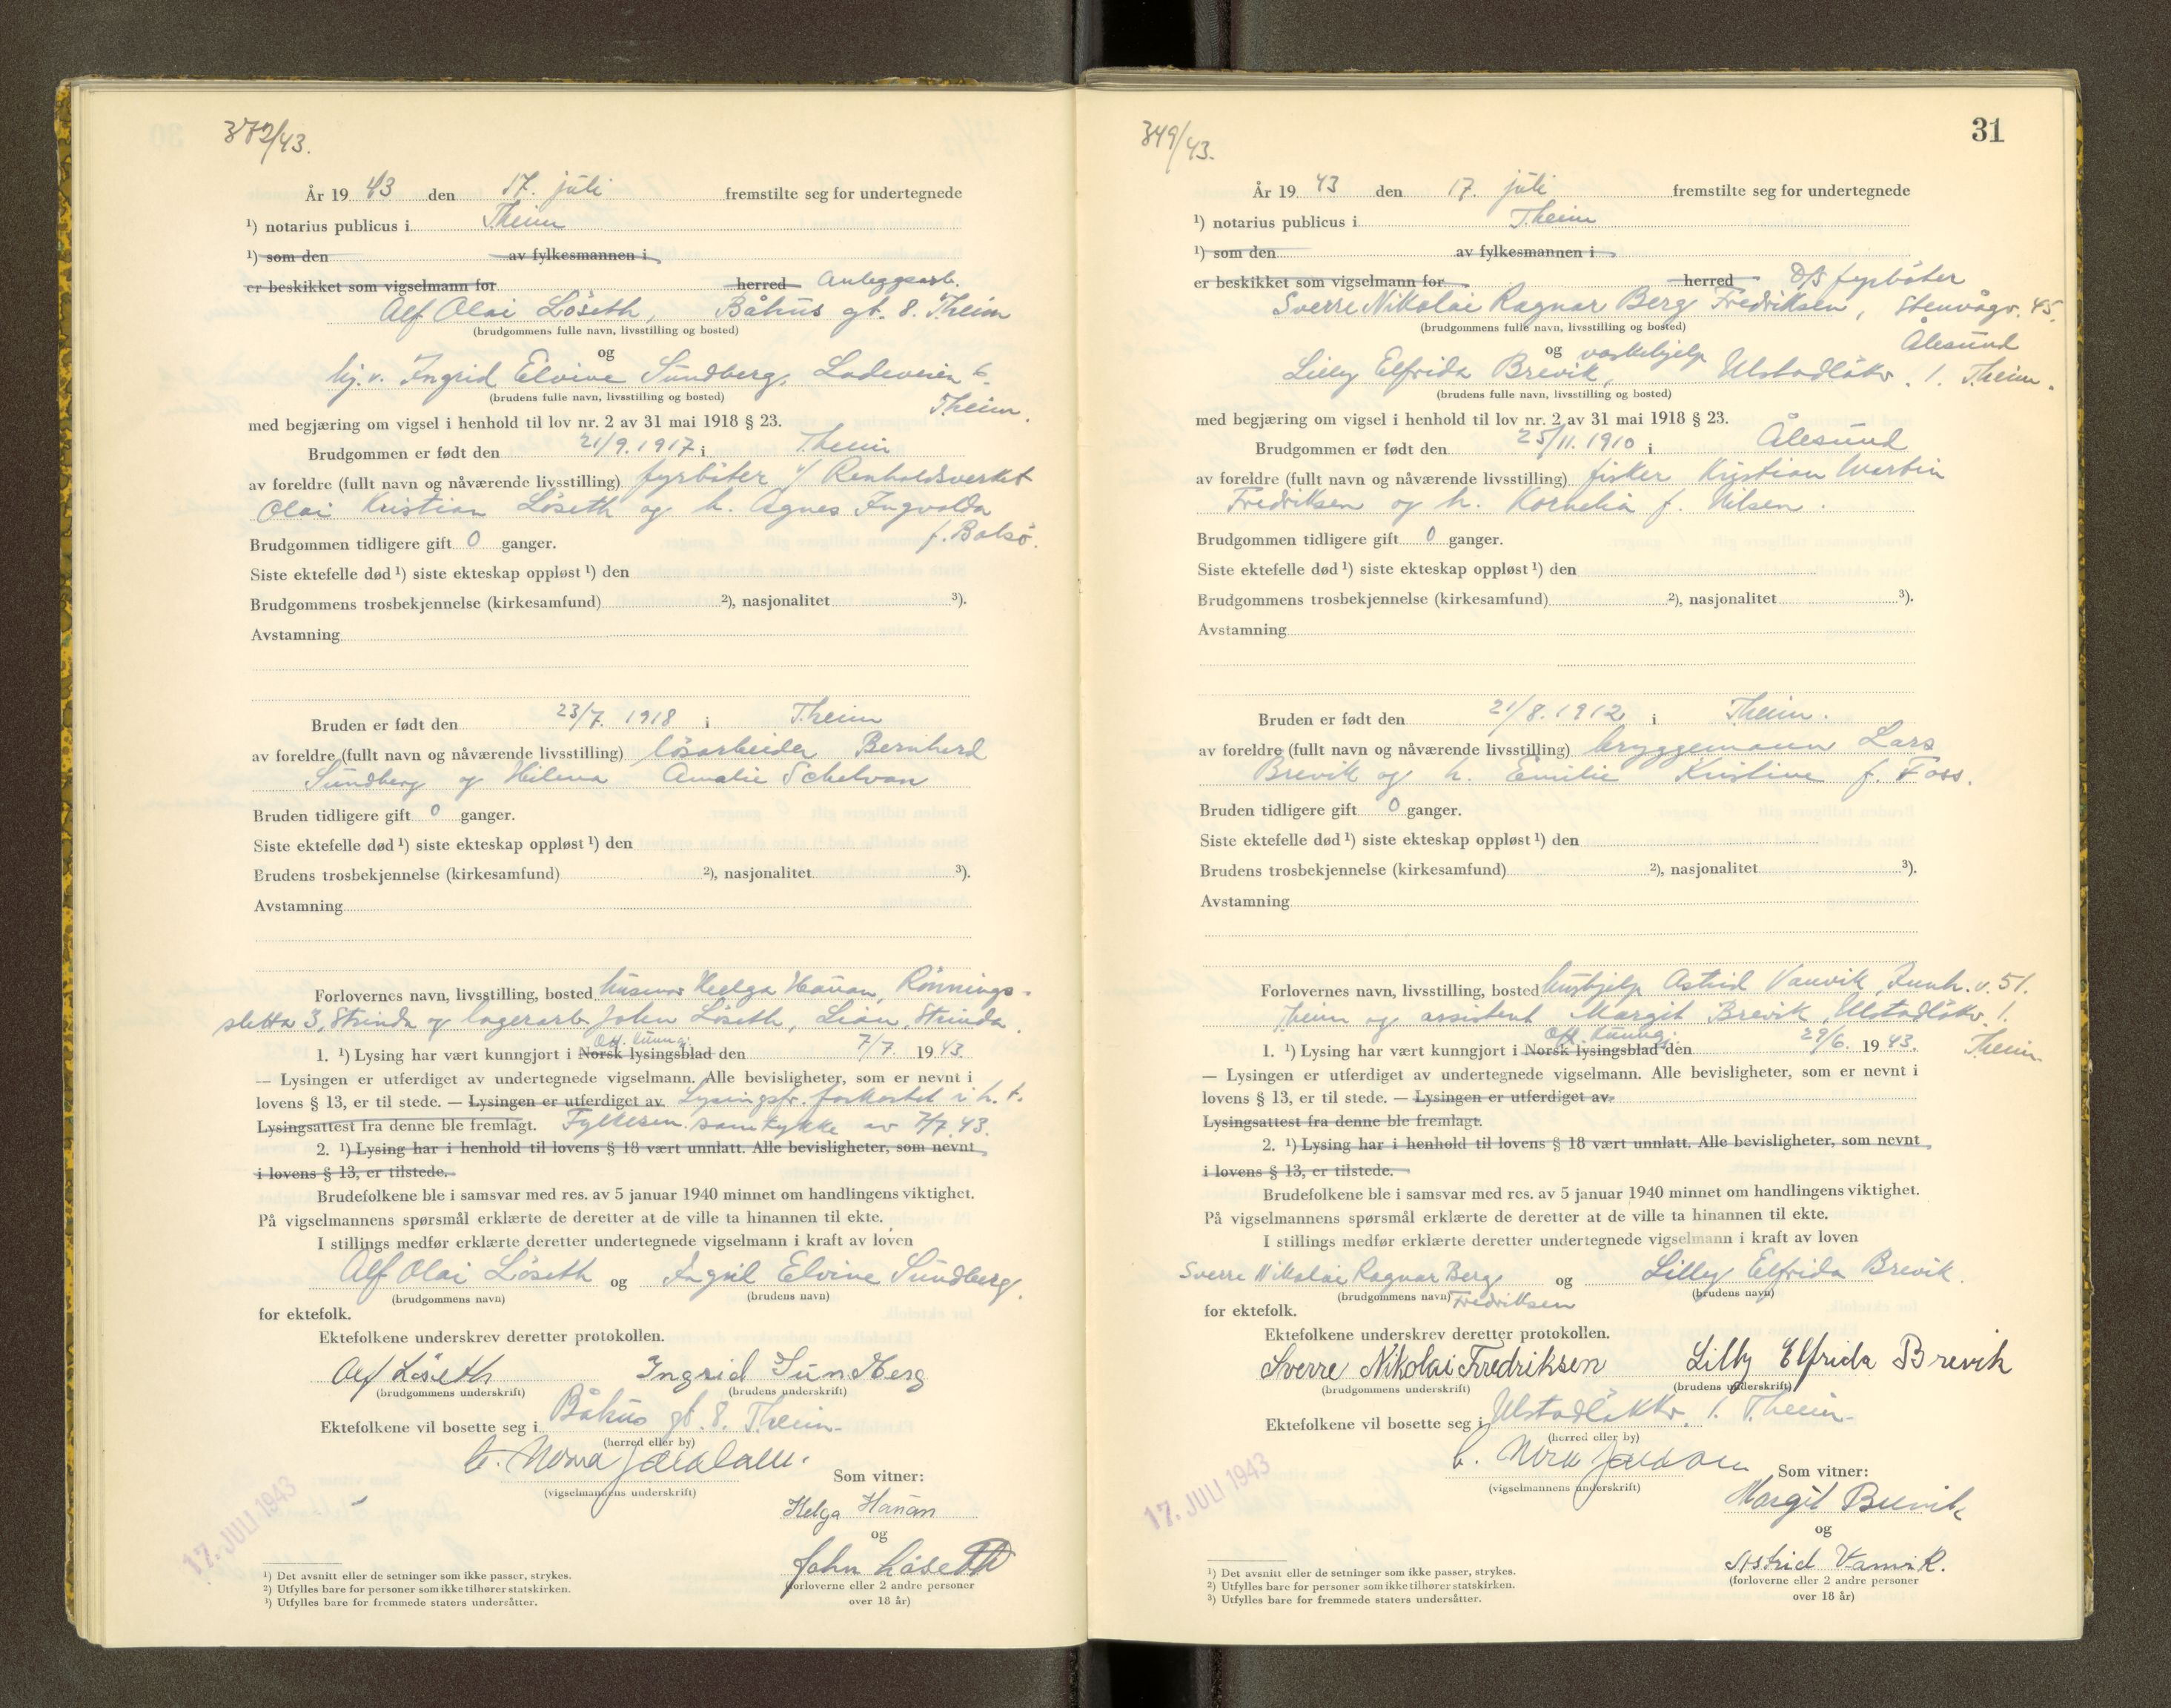 372/43.
År 19 43 den 17. juli fremstilte seg for undertegnede
¹) notarius publicus i Theim
¹) som den av fylkesmannen i
er beskikket som vigselmann for herred Anleggsarb.
Alf Olai Löseth, Båhus gt. 8. Theim
(brudgommens fulle navn, livsstilling og bosted)
og
hj.v. Ingrid Elvine Sundberg, Ladeveien 6.
(brudens fulle navn, livsstilling og bosted)
Theim.
med begjæring om vigsel i henhold til lov nr. 2 av 31 mai 1918 § 23.
Brudgommen er født den 21/9.1917 i Theim
av foreldre (fullt navn og nåværende livsstilling) fyrböter v/ Renholdsverket
Olai Kristian Löseth og h. Agnes Ingvalda
f. Bolsö.
Brudgommen tidligere gift 0 ganger.
Siste ektefelle død ¹) siste ekteskap oppløst ¹) den
Brudgommens trosbekjennelse (kirkesamfund) ²), nasjonalitet ³).
Avstamning
Bruden er født den 23/7. 1918 i Theim
av foreldre (fullt navn og nåværende livsstilling) lösarbeider Bernherd
Sundberg og Hilena Amalie Schelvan
Bruden tidligere gift 0 ganger.
Siste ektefelle død ¹) siste ekteskap oppløst ¹) den
Brudens trosbekjennelse (kirkesamfund) ²), nasjonalitet ³).
Avstamning
Forlovernes navn, livsstilling, bosted husmor Helga Hanan, Rönnings-
sletta 3, Strinda og lagerarb John Löseth, Lian, Strinda.
Off. kunng.
1. ¹) Lysing har vært kunngjort i Norsk lysingsblad den 7/7. 19 43.
— Lysingen er utferdiget av undertegnede vigselmann. Alle bevisligheter, som er nevnt i
lovens § 13, er til stede. — Lysingen er utferdiget av Lysingsfr. forkortet i h. t.
Lysingsattest fra denne ble fremlagt. Fylkesm. samtykke av 7/7.43.
2. ¹) Lysing har i henhold til lovens § 18 vært unnlatt. Alle bevisligheter, som nevnt
i lovens § 13, er tilstede.
Brudefolkene ble i samsvar med res. av 5 januar 1940 minnet om handlingens viktighet.
På vigselmannens spørsmål erklærte de deretter at de ville ta hinannen til ekte.
I stillings medfør erklærte deretter undertegnede vigselmann i kraft av loven
Alf Olai Löseth og Ingrid Elvine Sundberg.
(brudgommens navn) (brudens navn)
for ektefolk.
Ektefolkene underskrev deretter protokollen.
Alf Löseth Ingrid Sundberg
(brudgommens underskrift) (brudens underskrift)
Ektefolkene vil bosette seg i Båhus gt. 8. Theim.
(herred eller by)
(vigselmannens underskrift)
Som vitner:
17. JULI 1943
Helga Hanan
og
John Löseth
(forloverne eller 2 andre personer
over 18 år)
¹) Det avsnitt eller de setninger som ikke passer, strykes.
²) Utfylles bare for personer som ikke tilhører statskirken.
³) Utfylles bare for fremmede staters undersåtter.
31
349/43.
År 19 43 den 17. juli fremstilte seg for undertegnede
¹) notarius publicus i Theim
¹) som den av fylkesmannen i
er beskikket som vigselmann for herred D/S fyrböter
Sverre Nikolai Ragnar Berg Fredriksen, Stenvågv. 45.
(brudgommens fulle navn, livsstilling og bosted)
Ålesund
og vaskehjelp
Lilly Elfrida Brevik, Ulstadløkv. 1. Theim.
(brudens fulle navn, livsstilling og bosted)
med begjæring om vigsel i henhold til lov nr. 2 av 31 mai 1918 § 23.
Brudgommen er født den 25/11. 1910 i Ålesund
av foreldre (fullt navn og nåværende livsstilling) fisker Kristian Martin
Fredriksen og h. Kornelia f. Nilsen.
Brudgommen tidligere gift 0 ganger.
Siste ektefelle død ¹) siste ekteskap oppløst ¹) den
Brudgommens trosbekjennelse (kirkesamfund) ²), nasjonalitet ³).
Avstamning
Bruden er født den 21/8.1912 i Theim.
av foreldre (fullt navn og nåværende livsstilling) bryggemann Lars
Brevik og h. Emilie Kristine f. Foss.
Bruden tidligere gift 0 ganger.
Siste ektefelle død ¹) siste ekteskap oppløst ¹) den
Brudens trosbekjennelse (kirkesamfund) ²), nasjonalitet ³).
Avstamning
Forlovernes navn, livsstilling, bosted hushjelp Astrid Vanvik, Innh.v. 51.
Theim og assistent Margit Brevik, Ulstadløkv. 1.
Off. kunng.
1. ¹) Lysing har vært kunngjort i Norsk lysingsblad den 29/6. 19 43. Theim
— Lysingen er utferdiget av undertegnede vigselmann. Alle bevisligheter, som er nevnt i
lovens § 13, er til stede. — Lysingen er utferdiget av
Lysingsattest fra denne ble fremlagt.
2. ¹) Lysing har i henhold til lovens § 18 vært unnlatt. Alle bevisligheter, som nevnt
i lovens § 13, er tilstede.
Brudefolkene ble i samsvar med res. av 5 januar 1940 minnet om handlingens viktighet.
På vigselmannens spørsmål erklærte de deretter at de ville ta hinannen til ekte.
I stillings medfør erklærte deretter undertegnede vigselmann i kraft av loven
Sverre Nikolai Ragnar Berg og Lilly Elfrida Brevik.
(brudgommens navn) Fredriksen (brudens navn)
for ektefolk.
Ektefolkene underskrev deretter protokollen.
Sverre Nikolai Fredriksen Lilly Elfrida Brevik
(brudgommens underskrift) (brudens underskrift)
Ektefolkene vil bosette seg i Ulstadløkkv. 1. Theim.
(herred eller by)
(vigselmannens underskrift)
Som vitner:
17. JULI 1943
Margit Brevik
og
Astrid Vanvik.
(forloverne eller 2 andre personer
over 18 år)
¹) Det avsnitt eller de setninger som ikke passer, strykes.
²) Utfylles bare for personer som ikke tilhører statskirken.
³) Utfylles bare for fremmede staters undersåtter.